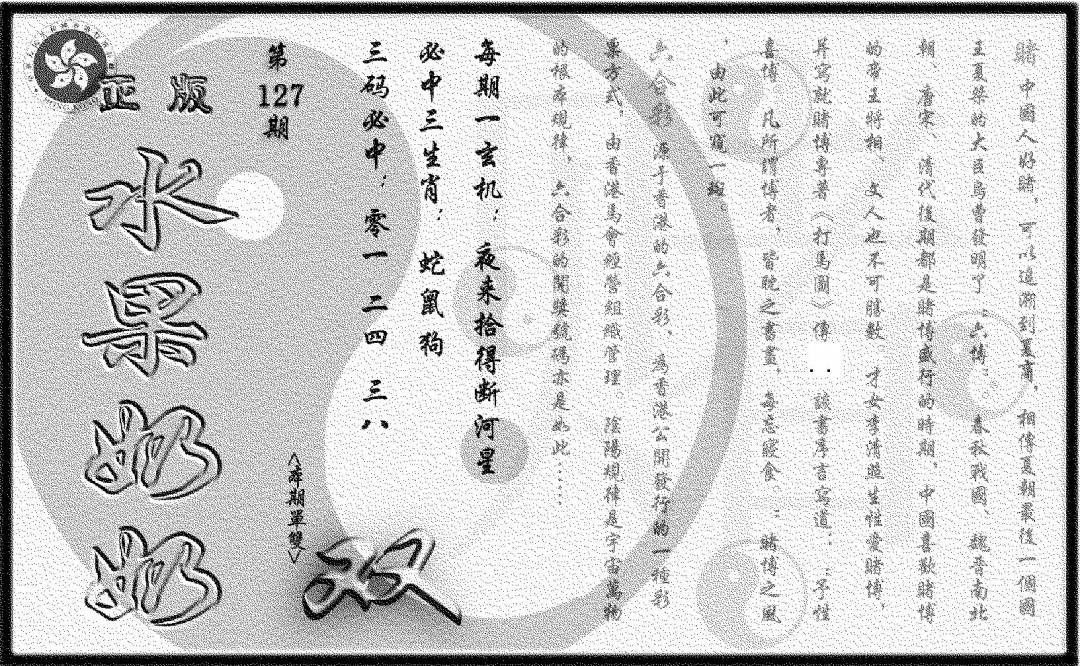 賭 中國人好賭，可以追溯到夏商，相傳夏朝最後一個國
王夏桀的大臣烏曹發明了；六博；。春秋戰國、魏晉南北
朝、唐宋、清代後期都是賭博盛行的時期，中國喜歡賭博
的帝王將相、文人也不可勝數 才女李清照生性愛賭博，
并寫就賭博專著《打馬圖》傳 . . 該書序言寫道：；予性
喜博，凡所謂博者，皆耽之晝，每忘寢食。；賭博之風
，由此可窺一斑。
六合彩 源于香港的六合彩、為香港公開發行的一種彩
票方式，由香港馬會經營組織管理。陰陽規律是宇宙萬物
的根本規律，六合彩的開獎號碼亦是如此……
每期一玄机； 夜来拾得断河星
必中三生肖； 蛇鼠狗
三码必中； 零一 二四 三八
第
127
期
<本期單雙>
双
正版
水果奶奶